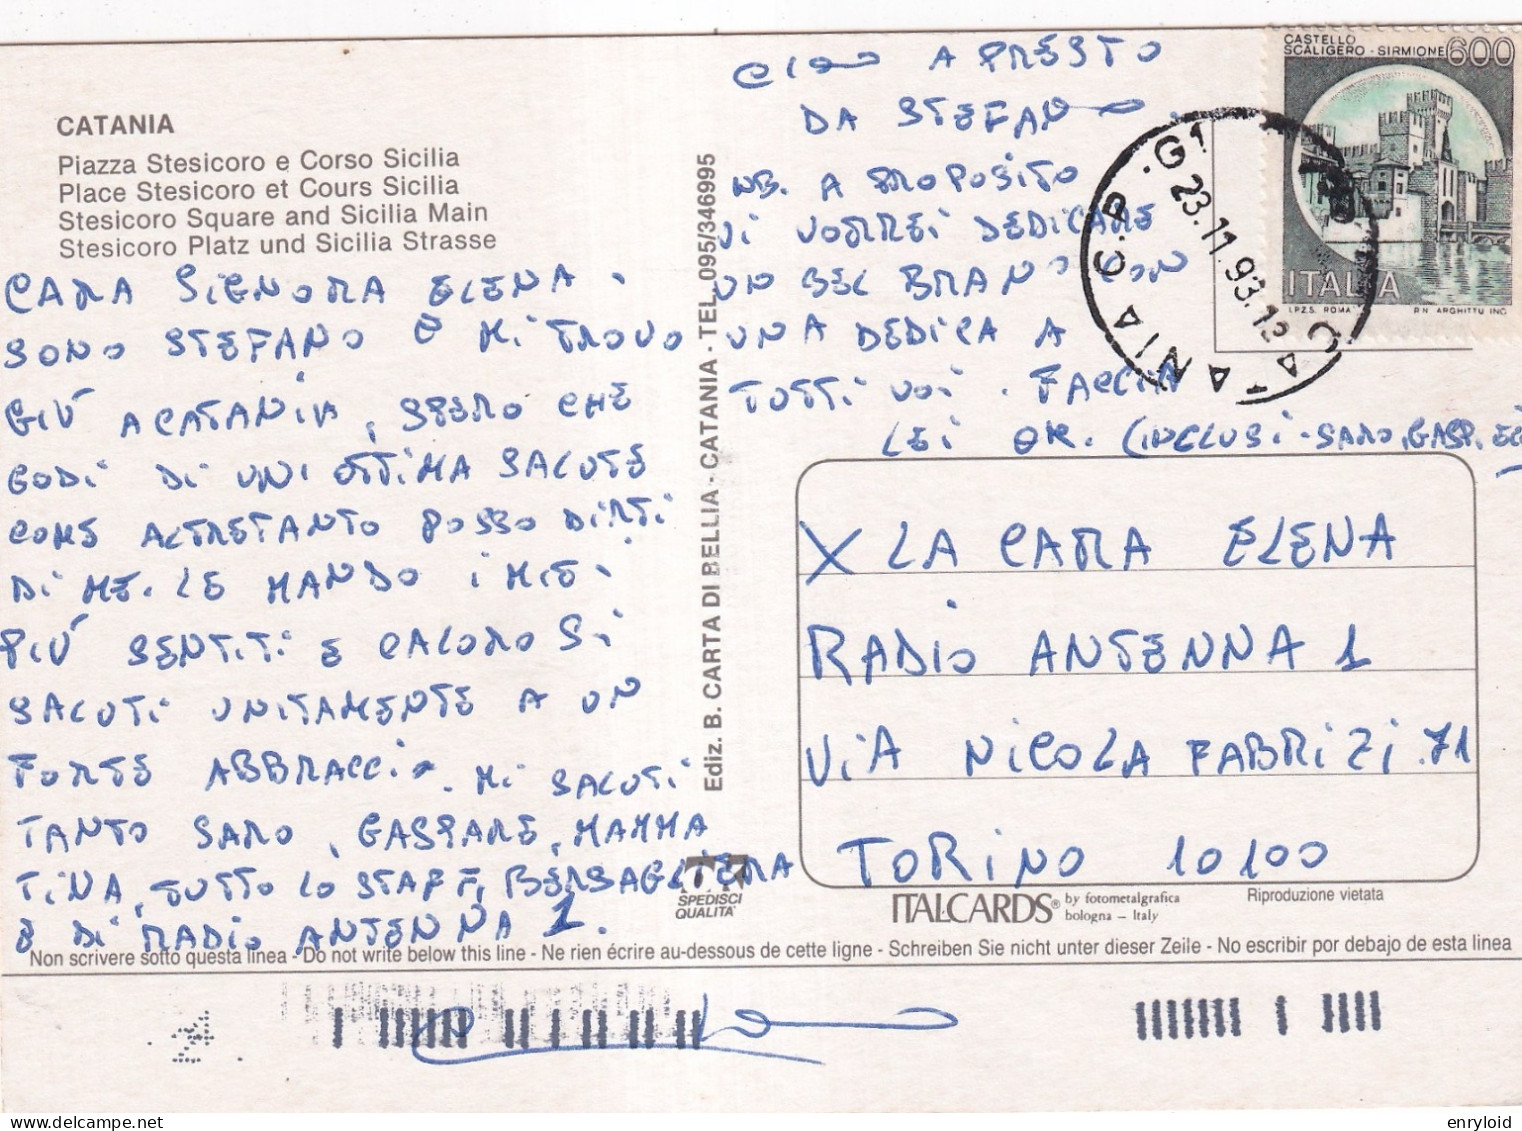 CATANIA
Piazza Stesicoro e Corso Sicilia
Place Stesicoro et Cours Sicilia
Stesicoro Square and Sicilia Main
Stesicoro Platz und Sicilia Strasse
CARA SIGNORA ELENA.
SONO STEFANO E MI TROVO
GIÚ A CATANIA, SPERO CHE
GODI DI UNI OTTIMA SALUTE
COME ALTRETANTO POSSO DIRTI
DI ME. LE MANDO I MIEI
PIÚ SENTITI E CALOROSI
SALUTI UNITAMENTE A UN
FORTE ABBRACCIO. MI SALUTI
TANTO SARO, GASPARE, MAMMA
TINA, TUTTO LO STAFF, BERSAGLIERA
E DI RADIO ANTENNA 1.
CIAO A PRESTO
DA STEFANO.
NB. A PROPOSITO
VI VORREI DEDICARE
UN BEL BRANO CON
UNA DEDICA A
TUTTI VOI. FACCIA
LEI OK. (INCLUSI-SARO, GASP, EC
Ediz. B. CARTA DI BELLIA - CATANIA - TEL. 095/346995
CASTELLO
SCALIGERO - SIRMIONE 600
ITALIA
I.P.Z.S. ROMA P.N. ARGHITTU INC.
CATANIA C.P. G1
23.11.93.12
X LA CARA ELENA
RADIO ANTENNA 1
VIA NICOLA FABRIZI.71
TORINO 10100
SPEDISCI
QUALITA'
ITALCARDS® by fotometalgrafica
bologna - Italy
Riproduzione vietata
Non scrivere sotto questa linea - Do not write below this line - Ne rien écrire au-dessous de cette ligne - Schreiben Sie nicht unter dieser Zeile - No escribir por debajo de esta linea
delcampe.net
enryloid